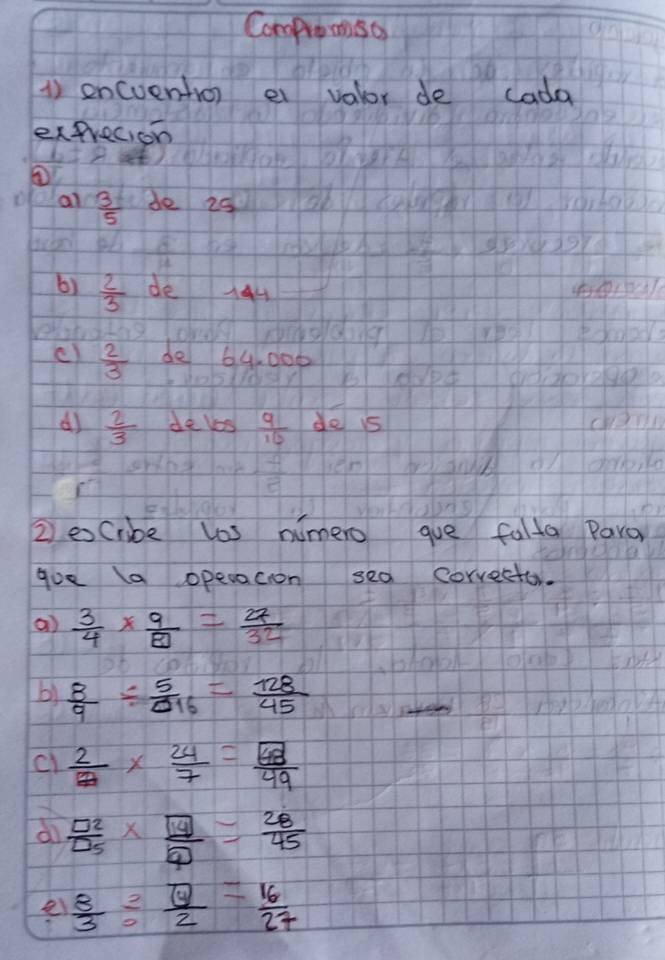 Compromiso
1) encuentro el valor de cada
expreción
①
a) 3/5 de 25
b) 2/3 de 144
c) 2/3 de 64.000
d) 2/3 de los 9/10 de 15
2) escribe los número que falta Para
que la operacion sea correcta.
a) 3/4 × 9/8 = 27/32
b) 8/9 ÷ 5/□16 = 128/45
c) 2/7 × 24/7 = 48/49
d) □2/□5 × 14/9 = 28/45
e) 8/3 ÷ □/2 = 16/27